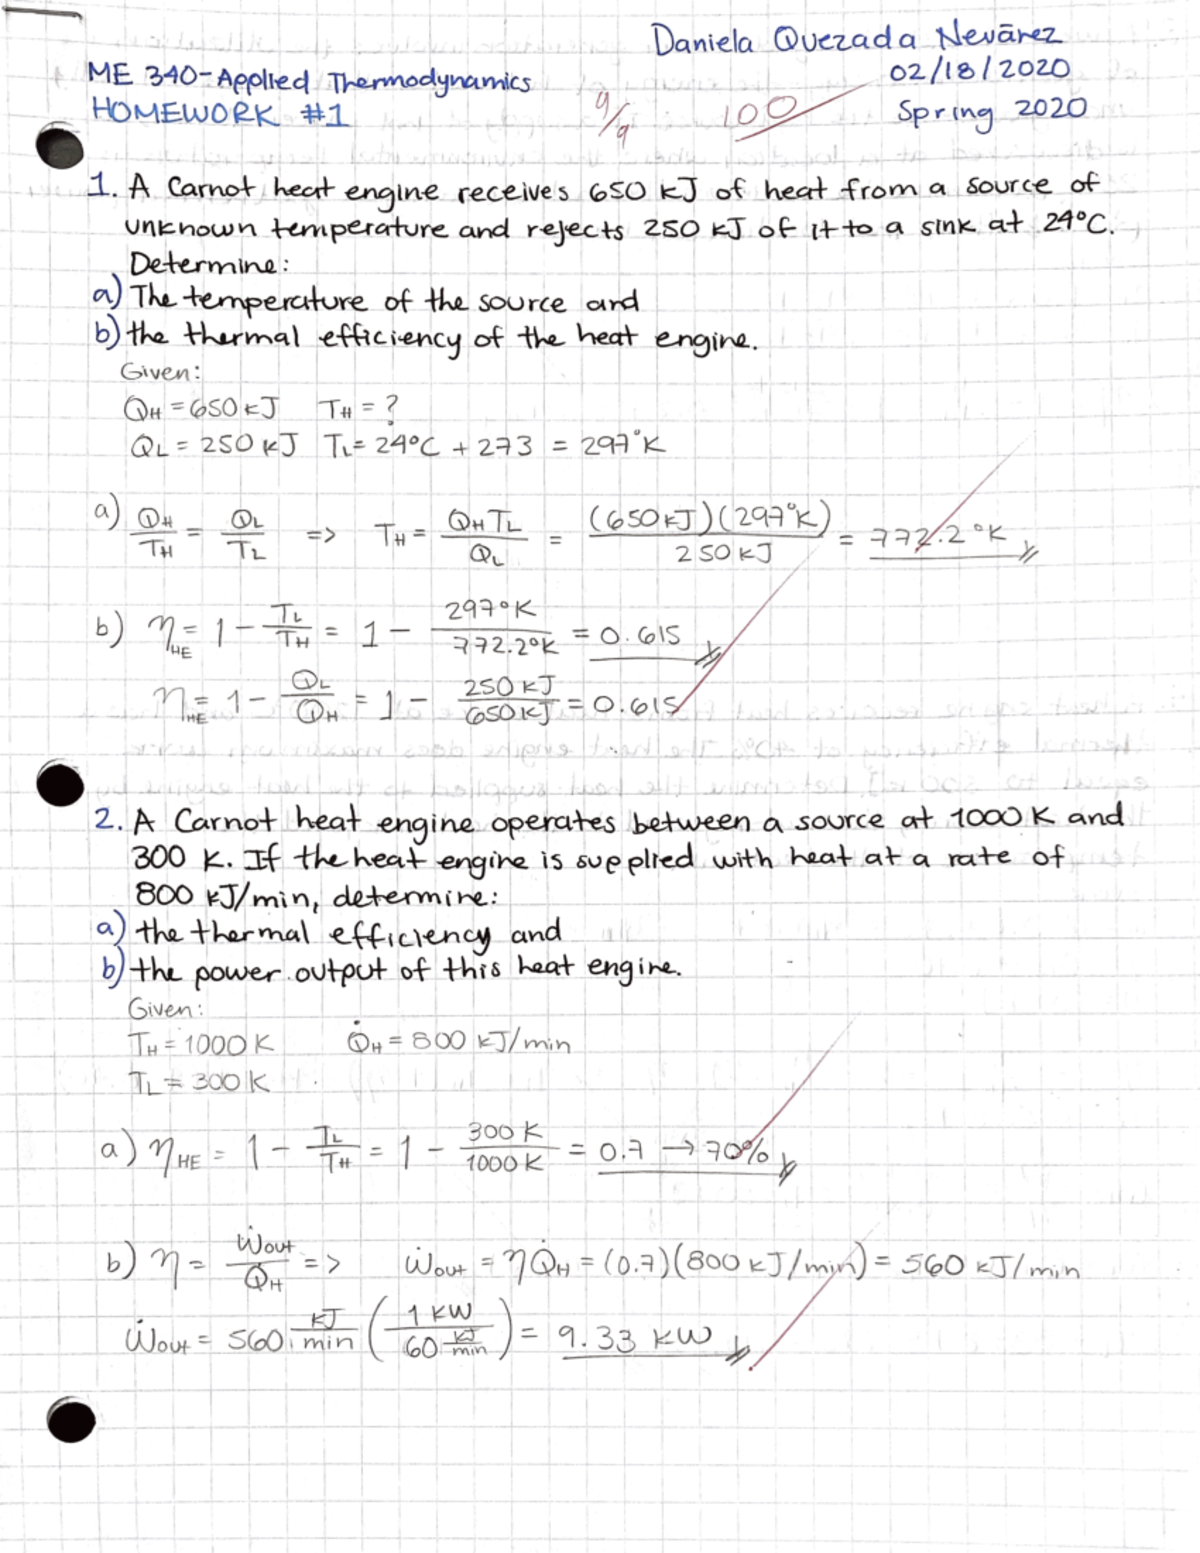 Daniela Quezada Nevárez
ME 340-Applied Thermodynamics 02/18/2020
HOMEWORK #1 9/9 100 Spring 2020
1. A Carnot heat engine receives 650 kJ of heat from a source of
unknown temperature and rejects 250 kJ of it to a sink at 24°C.
Determine:
a) The temperature of the source and
b) the thermal efficiency of the heat engine.
Given:
QH = 650 kJ TH = ?
QL = 250 kJ TL = 24°C + 273 = 297°K
a) QH/TH = QL/TL => TH = QH TL/QL = (650 kJ)(297°K)/250 kJ = 772.2°K
b) ηHE = 1 - TL/TH = 1 - 297°K/772.2°K = 0.615
ηHE = 1 - QL/QH = 1 - 250 kJ/650 kJ = 0.615
2. A Carnot heat engine operates between a source at 1000 K and
300 K. If the heat engine is supplied with heat at a rate of
800 kJ/min, determine:
a) the thermal efficiency and
b) the power output of this heat engine.
Given:
TH = 1000 K Q̇H = 800 kJ/min
TL = 300 K
a) ηHE = 1 - TL/TH = 1 - 300 K/1000 K = 0.7 → 70%
b) η = Ẇout/Q̇H => Ẇout = ηQ̇H = (0.7)(800 kJ/min) = 560 kJ/min
Ẇout = 560 kJ/min (1 kW/60 kJ/min) = 9.33 kW